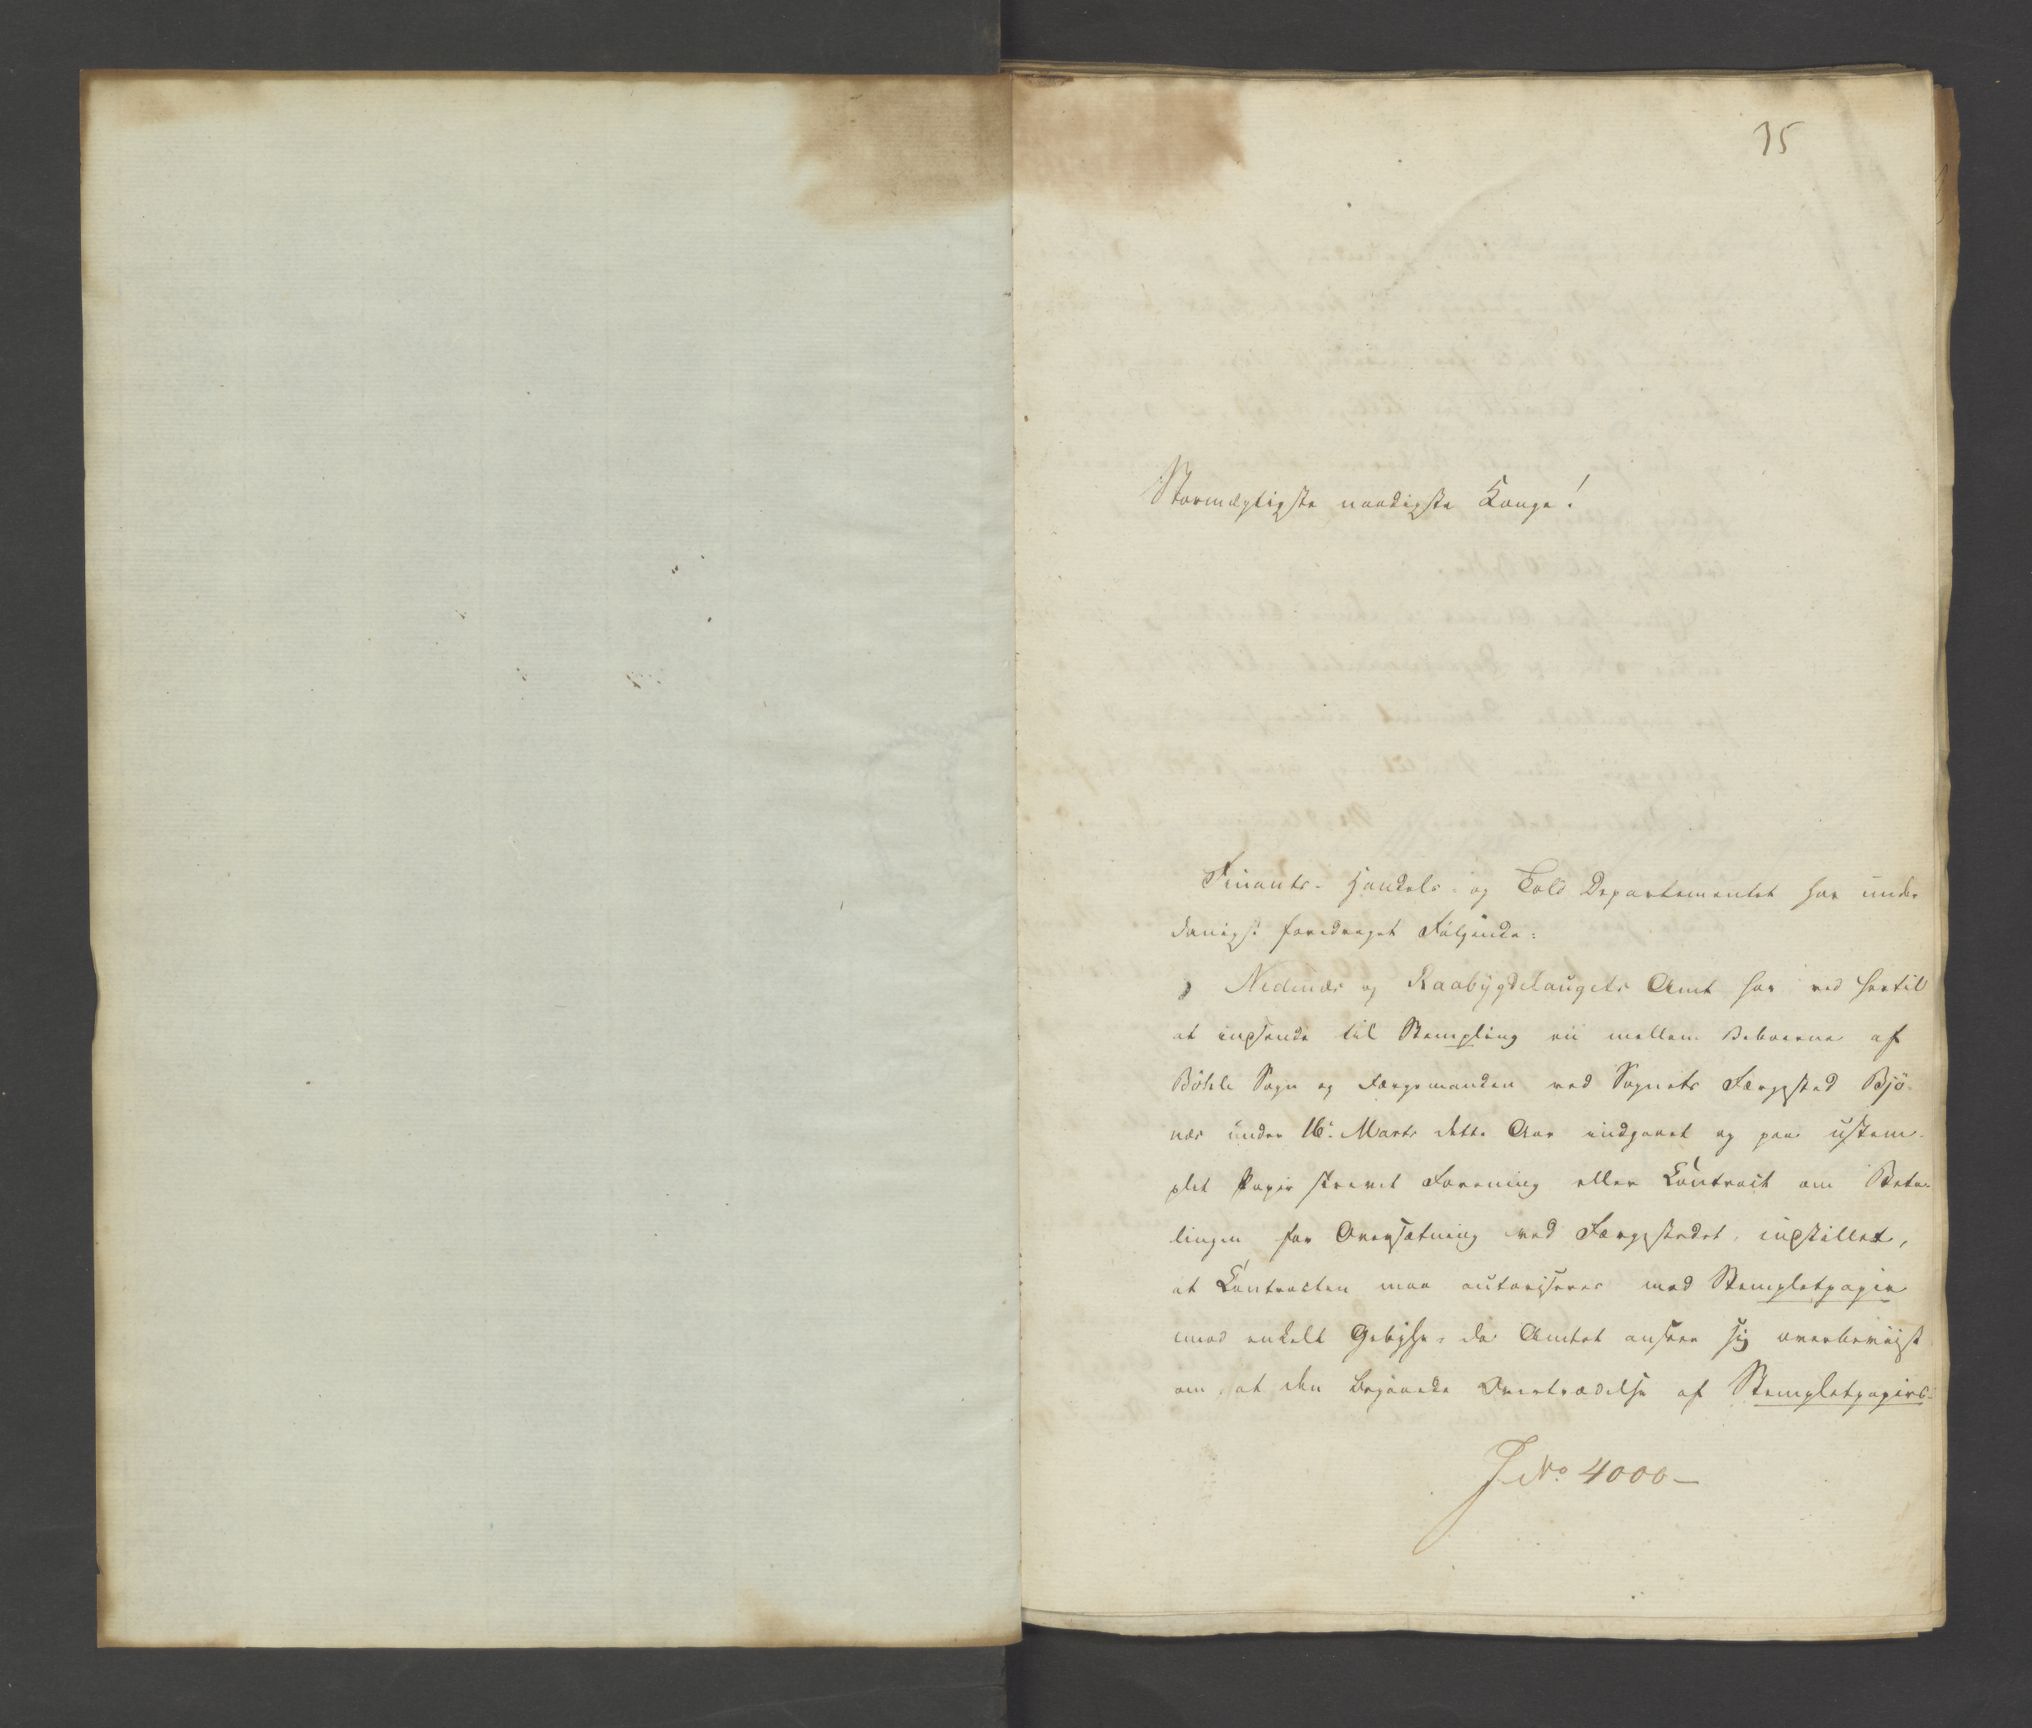 35
Stormægtigste naadigste Konge!
Finants- Handels- og Told Departementet har under
danigst foredraget Følgende:
Nedenæs og Raabygdelaugets Amt har ved hertil
at indsende til Stempling en mellem Beboerne af
Böhle Sogn og Færgemanden ved Sognets Færgested Bjö-
næs under 16de Marts dette Aar indgaaet og paa ustem-
plet Papir skrevet Forening eller Contract om Beta-
lingen for Oversætning ved Færgestedet, indstillet,
at Contracten maa autoriseres med Stempletpapir
mod enkelt Gebyhr, da Amtet anseer sig overbeviist
om, at den begaaede Overtrædelse af Stempletpapirs-
J. No 4000-